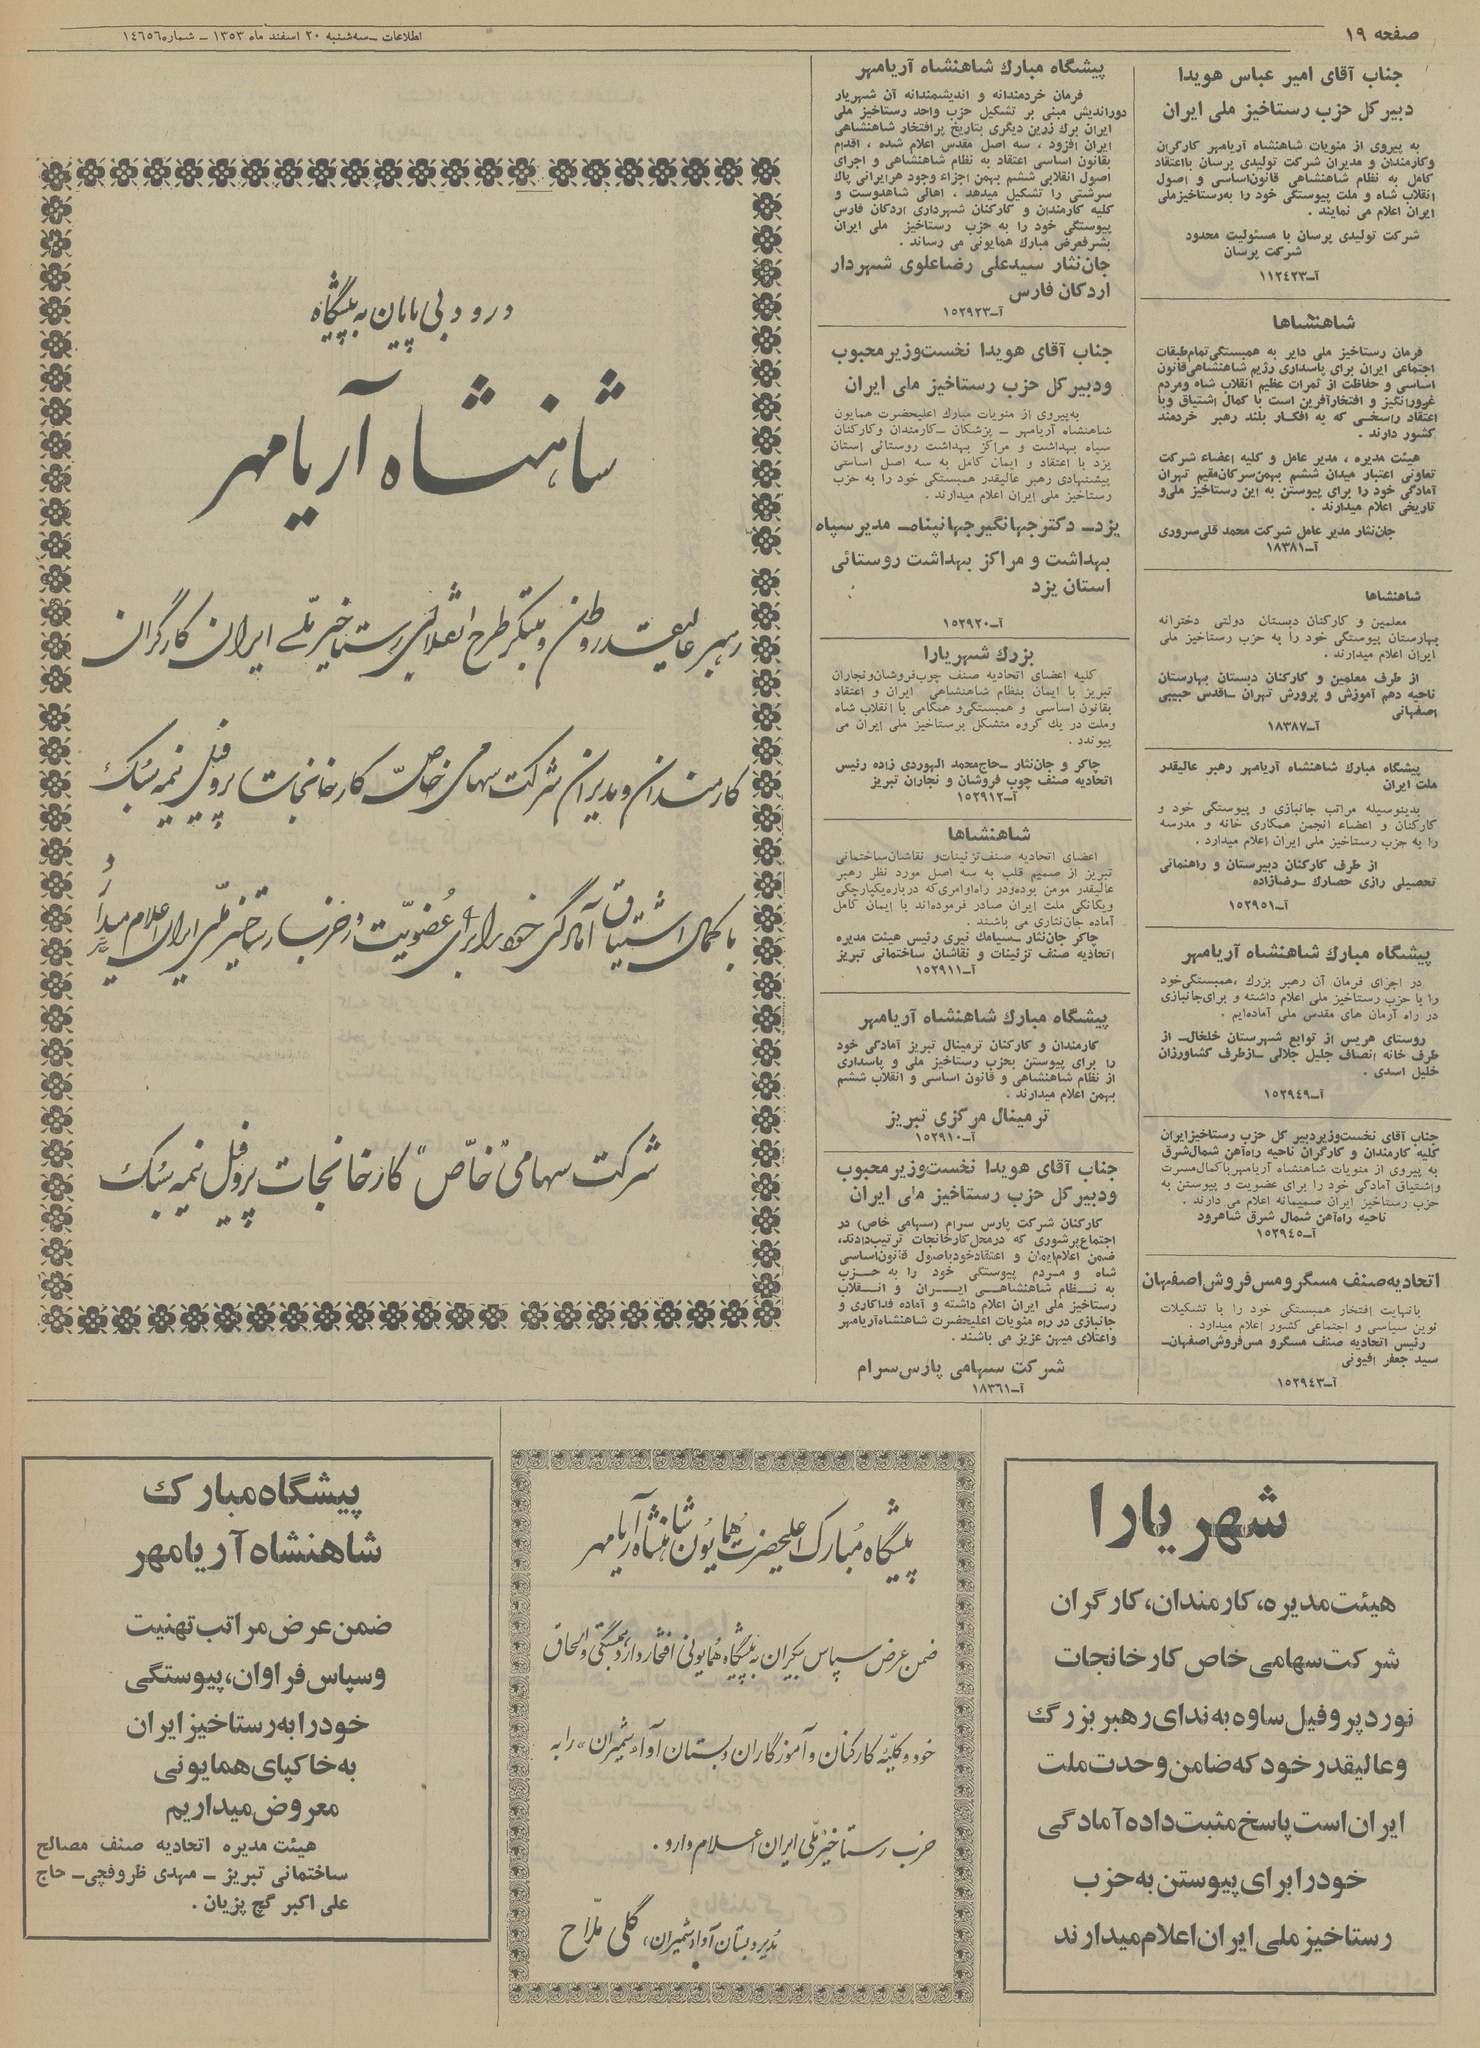 صفحه ۱۹
اطلاعات ــ سه‌شنبه ۲۰ اسفند ماه ۱۳۵۳ ــ شماره ۱۴۶۵۶
جناب آقای امیر عباس هویدا
دبیر کل حزب رستاخیز ملی ایران
به پیروی از منویات شاهنشاه آریامهر کارگران
وکارمندان و مدیران شرکت تولیدی پرسان بااعتقاد
کامل به نظام شاهنشاهی قانون‌اساسی و اصول
انقلاب شاه و ملت پیوستگی خود را به‌رستاخیزملی
ایران اعلام می نمایند .
شرکت تولیدی پرسان با مسئولیت محدود
شرکت پرسان
آ–۱۱۲۴۲۳
شاهنشاها
فرمان رستاخیز ملی دایر به همبستگی‌تمام‌طبقات
اجتماعی ایران برای پاسداری رژیم شاهنشاهی‌قانون
اساسی و حفاظت از ثمرات عظیم انقلاب شاه ومردم
غرورانگیز و افتخارآفرین است با کمال اشتیاق وبا
اعتقاد راسخی که به افکار بلند رهبر خردمند
کشور دارند .
هیئت مدیره ، مدیر عامل و کلیه اعضاء شرکت
تعاونی اعتبار میدان ششم بهمن‌سرکان‌مقیم تهران
آمادگی خود را برای پیوستن به این رستاخیز ملی‌و
تاریخی اعلام میدارند .
جان‌نثار مدیر عامل شرکت محمد قلی‌سروری
آ–۱۸۳۸۱
شاهنشاها
معلمین و کارکنان دبستان دولتی دخترانه
بهارستان پیوستگی خود را به حزب رستاخیز ملی
ایران اعلام میدارند .
از طرف معلمین و کارکنان دبستان بهارستان
ناحیه دهم آموزش و پرورش تهران –اقدس حبیبی
اصفهانی
آ–۱۸۳۸۷
پیشگاه مبارك شاهنشاه آریامهر رهبر عالیقدر
ملت ایران
بدینوسیله مراتب جانبازی و پیوستگی خود و
کارکنان و اعضاء انجمن همکاری خانه و مدرسه
را به حزب رستاخیز ملی ایران اعلام میدارد .
از طرف کارکنان دبیرستان و راهنمائی
تحصیلی رازی حصارك –رضازاده
آ–۱۵۲۹۵۱
پیشگاه مبارك شاهنشاه آریامهر
در اجرای فرمان آن رهبر بزرگ ،همبستگی‌خود
را با حزب رستاخیز ملی اعلام داشته و برای‌جانبازی
در راه آرمان های مقدس ملی آماده‌ایم .
روستای هریس از توابع شهرستان خلخال– از
طرف خانه انصاف جلیل جلالی –ازطرف کشاورزان
خلیل اسدی .
آ–۱۵۲۹۴۹
جناب آقای نخست‌وزیردبیر کل حزب رستاخیزایران
کلیه کارمندان و کارگران ناحیه راه‌آهن شمال‌شرق
به پیروی از منویات شاهنشاه آریامهرباکمال‌مسرت
واشتیاق آمادگی خود را برای عضویت و پیوستن به
حزب رستاخیز ایران صمیمانه اعلام می دارند .
ناحیه راه‌آهن شمال شرق شاهرود
آ–۱۵۲۹۴۵
اتحادیه‌صنف مسگر ومس‌فروش‌اصفهان
بانهایت افتخار همبستگی خود را با تشکیلات
نوین سیاسی و اجتماعی کشور اعلام میدارد .
رئیس اتحادیه صنف مسگرو مس‌فروش‌اصفهان–
سید جعفر افیونی
آ–۱۵۲۹۴۳
پیشگاه مبارك شاهنشاه آریامهر
فرمان خردمندانه و اندیشمندانه آن شهریار
دوراندیش مبنی بر تشکیل حزب واحد رستاخیز ملی
ایران برك زرین دیگری بتاریخ پرافتخار شاهنشاهی
ایران افزود ، سه اصل مقدس اعلام شده ، اقدام
بقانون اساسی اعتقاد به نظام شاهنشاهی و اجرای
اصول انقلابی ششم بهمن اجزاء وجود هرایرانی پاك
سرشتی را تشکیل میدهد ، اهالی شاهدوست و
کلیه کارمندان و کارکنان شهرداری اردکان فارس
پیوستگی خود را به حزب رستاخیز ملی ایران
بشرفعرض مبارك همایونی می رساند .
جان‌نثار سیدعلی رضاعلوی شهردار
اردکان فارس
آ–۱۵۲۹۲۳
جناب آقای هویدا نخست‌وزیر محبوب
ودبیر کل حزب رستاخیز ملی ایران
به‌پیروی از منویات مبارك اعلیحضرت همایون
شاهنشاه آریامهر – پزشکان –کارمندان وکارکنان
سپاه بهداشت و مراکز بهداشت روستائی استان
یزد با اعتقاد و ایمان کامل به سه اصل اساسی
پیشنهادی رهبر عالیقدر همبستگی خود را به حزب
رستاخیز ملی ایران اعلام میدارند .
یزد– دکترجهانگیرجهانپناه– مدیرسپاه
بهداشت و مراکز بهداشت روستائی
استان یزد
آ–۱۵۲۹۲۰
بزرك شهریارا
کلیه اعضای اتحادیه صنف چوب‌فروشان‌ونجاران
تبریز با ایمان بنظام شاهنشاهی ایران و اعتقاد
بقانون اساسی و همبستگی‌و همگامی با انقلاب شاه
وملت در یك گروه متشکل برستاخیز ملی ایران می
پیوندد .
چاکر و جان‌نثار –حاج‌محمد الهوردی زاده رئیس
اتحادیه صنف چوب فروشان و نجاران تبریز
آ–۱۵۲۹۱۲
شاهنشاها
اعضای اتحادیه صنف‌تزئینات‌و نقاشان‌ساختمانی
تبریز از صمیم قلب به سه اصل مورد نظر رهبر
عالیقدر مومن بوده‌ودر راه‌اوامری‌که درباره‌یکپارچگی
ویگانگی ملت ایران صادر فرموده‌اند با ایمان کامل
آماده جان‌نثاری می باشند .
چاکر جان‌نثار –سیامك نیری رئیس هیئت مدیره
اتحادیه صنف تزئینات و نقاشان ساختمانی تبریز
آ–۱۵۲۹۱۱
پیشگاه مبارك شاهنشاه آریامهر
کارمندان و کارکنان ترمینال تبریز آمادگی خود
را برای پیوستن بحزب رستاخیز ملی و پاسداری
از نظام شاهنشاهی و قانون اساسی و انقلاب ششم
بهمن اعلام میدارند .
ترمینال مرکزی تبریز
آ–۱۵۲۹۱۰
جناب آقای هویدا نخست‌وزیر محبوب
ودبیر کل حزب رستاخیز ملی ایران
کارکنان شرکت پارس سرام (سهامی خاص) در
اجتماع‌پرشوری که درمحل‌کارخانجات ترتیب‌دادند،
ضمن اعلام‌ایمان و اعتقادخودباصول قانون‌اساسی
شاه و مردم پیوستگی خود را به حزب
به نظام شاهنشاهی ایران و انقلاب
رستاخیز ملی ایران اعلام داشته و آماده فداکاری و
جانبازی در راه منویات اعلیحضرت شاهنشاه‌آریامهر
واعتلای میهن عزیز می باشند .
شرکت سهامی پارس‌سرام
آ–۱۸۳۶۱
درود بی پایان به پیشگاه
شاهنشاه آریامهر
رهبر عالیقدر وطن و مبتکر طرح انقلابی رستاخیز ملّی ایران کارگران
کارمندان و مدیران شرکت سهامی خاصّ کارخانجات پروفیل نیمه سبک
با کمال اشتیاق آمادگی خود را برای عُضویّت در حزب رستاخیز ملّی ایران اعلام میدارند
شرکت سهامی "خاصّ" کارخانجات پروفیل نیمه سبک
شهریارا
هیئت‌مدیره، کارمندان، کارگران
شرکت سهامی خاص کارخانجات
نورد پروفیل ساوه به ندای رهبر بزرگ
وعالیقدر خود که ضامن وحدت ملت
ایران است پاسخ مثبت داده آمادگی
خود را برای پیوستن به حزب
رستاخیز ملی ایران اعلام میدارند
پیشگاه مُبارک اعلیحضرت هُمایون شاهنشاه آریامهر
ضمن عرض سپاس بیکران به پیشگاه هُمایونی افتخار دارد همبستگی و الحاق
خود و کلیّه کارکنان و آموزگاران دبستان آوا «شمیران» را به
حزب رستاخیز ملّی ایران اعلام دارد .
مُدیر دبستان آوا، شمیران، گلی ملّاح
پیشگاه مبارک
شاهنشاه آریامهر
ضمن عرض مراتب تهنیت
وسپاس فراوان، پیوستگی
خود را به رستاخیز ایران
به خاکپای همایونی
معروض میداریم
هیئت مدیره اتحادیه صنف مصالح
ساختمانی تبریز – مهدی ظروفچی– حاج
علی اکبر گچ پزیان .